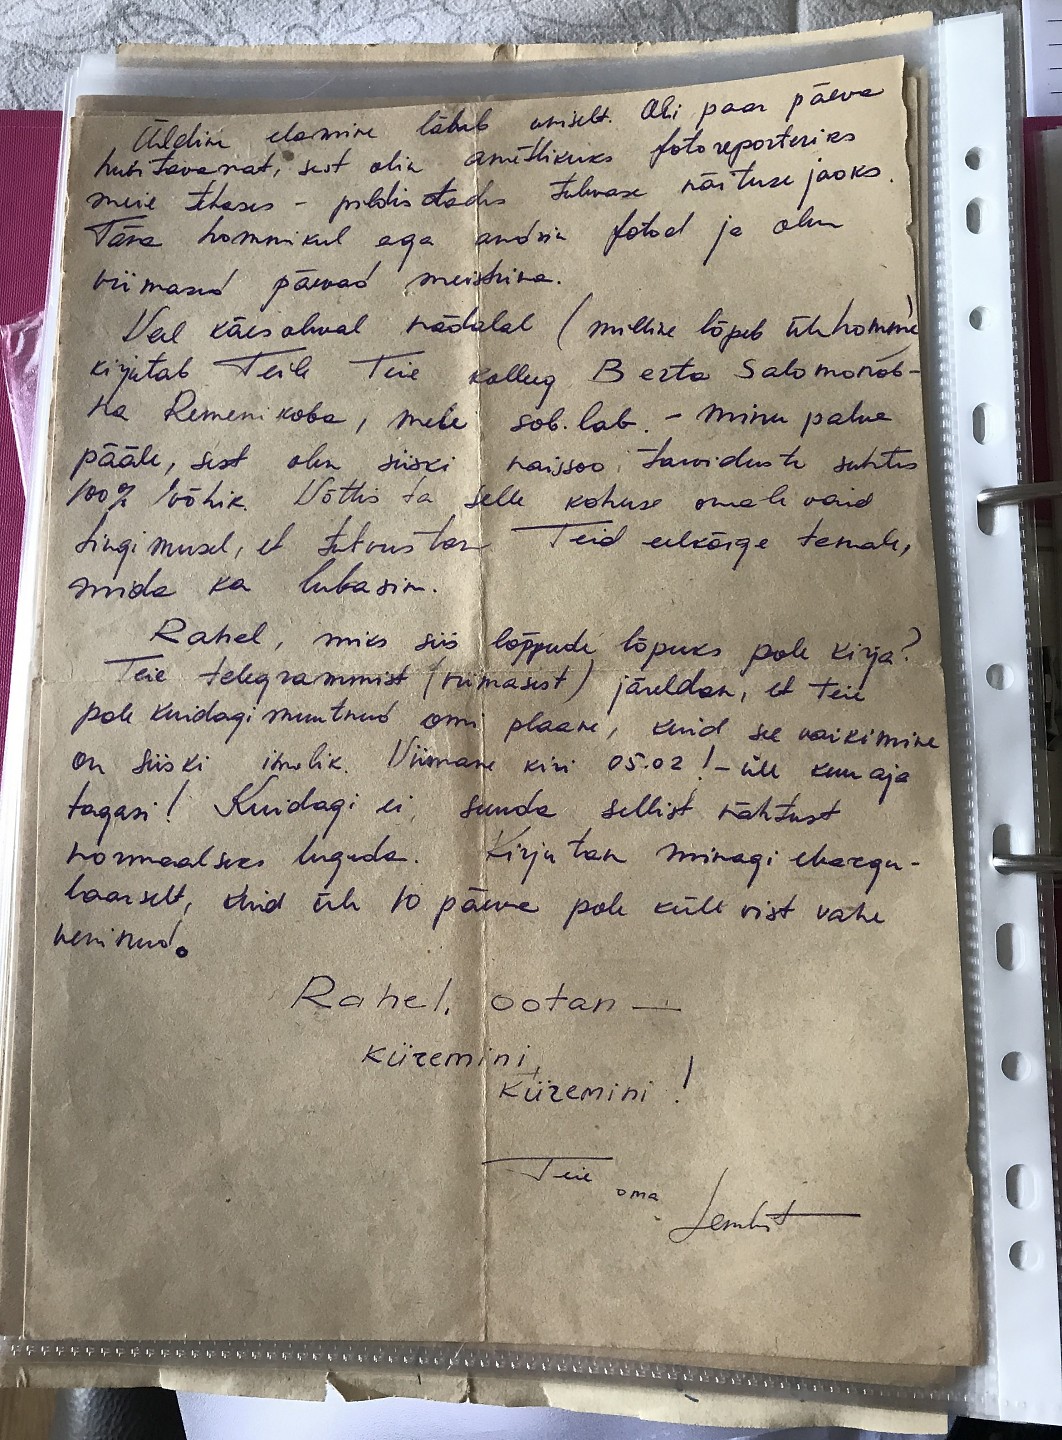 Üldine elamine läheb uniselt. Oli paar päeva
huvitavamat, sest olin ametlikuks fotoreporteriks
meie tehases - pildistades tulevase näituse jaoks.
Täna hommikul aga andsin fotod ja olen
viimased päevad meistrina.
Veel käesoleval nädalal (milline lõpeb ülehomme)
kirjutab Teile Teie kolleeg Berta Salomonov-
na Remenikova, meie lab. - minu palve
pääle, sest olen siiski naissoo tarviduste suhtes
100% võhik. Võttis ta selle kohuse omale vaid
tingimusel, et tutvustan Teid eelkõige temale,
mida ka lubasin.
Rahel, miks siis lõppude lõpuks pole kirja?
Teie telegrammist (viimasest) järeldan, et Teie
pole kuidagi muutnud omi plaane, kuid see vaikimine
on siiski imelik. Viimane kiri 05.02! - üle kuu aja
tagasi! Kuidagi ei suuda sellist nähtust
normaalseks lugeda. Kirjutan minagi ebaregu-
laarselt, kuid üle 10 päeva pole küll vist vahe
veninud.
Rahel, ootan —
kiiremini,
kiiremini!
Teie oma Lembit